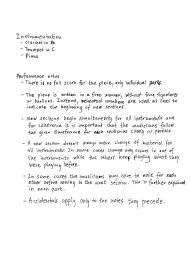 Instrumentation
- Clarinet in Bb
- Trumpet in C
- Piano
Performance notes
- There is no full score for the piece, only individual parts.
- The piece is written in a free manner, without time signatures
or barlines. Instead, rehearsal numbers are used as cues to
indicate the beginning of new sections.
- New sections begin simultaneously for all instruments and
for coherence it is important that the musicians follow
the given timeframe for each section as closely as possible.
- A new section doesn't always mean change of material for
all instruments. In some cases change only occurs in one of
the instruments while the others keep playing what they
were playing before.
- In some cases the musicians may have to wait for each
other before moving to the next section. This is further explained
in each part.
- Accidentals apply only to the notes they precede.